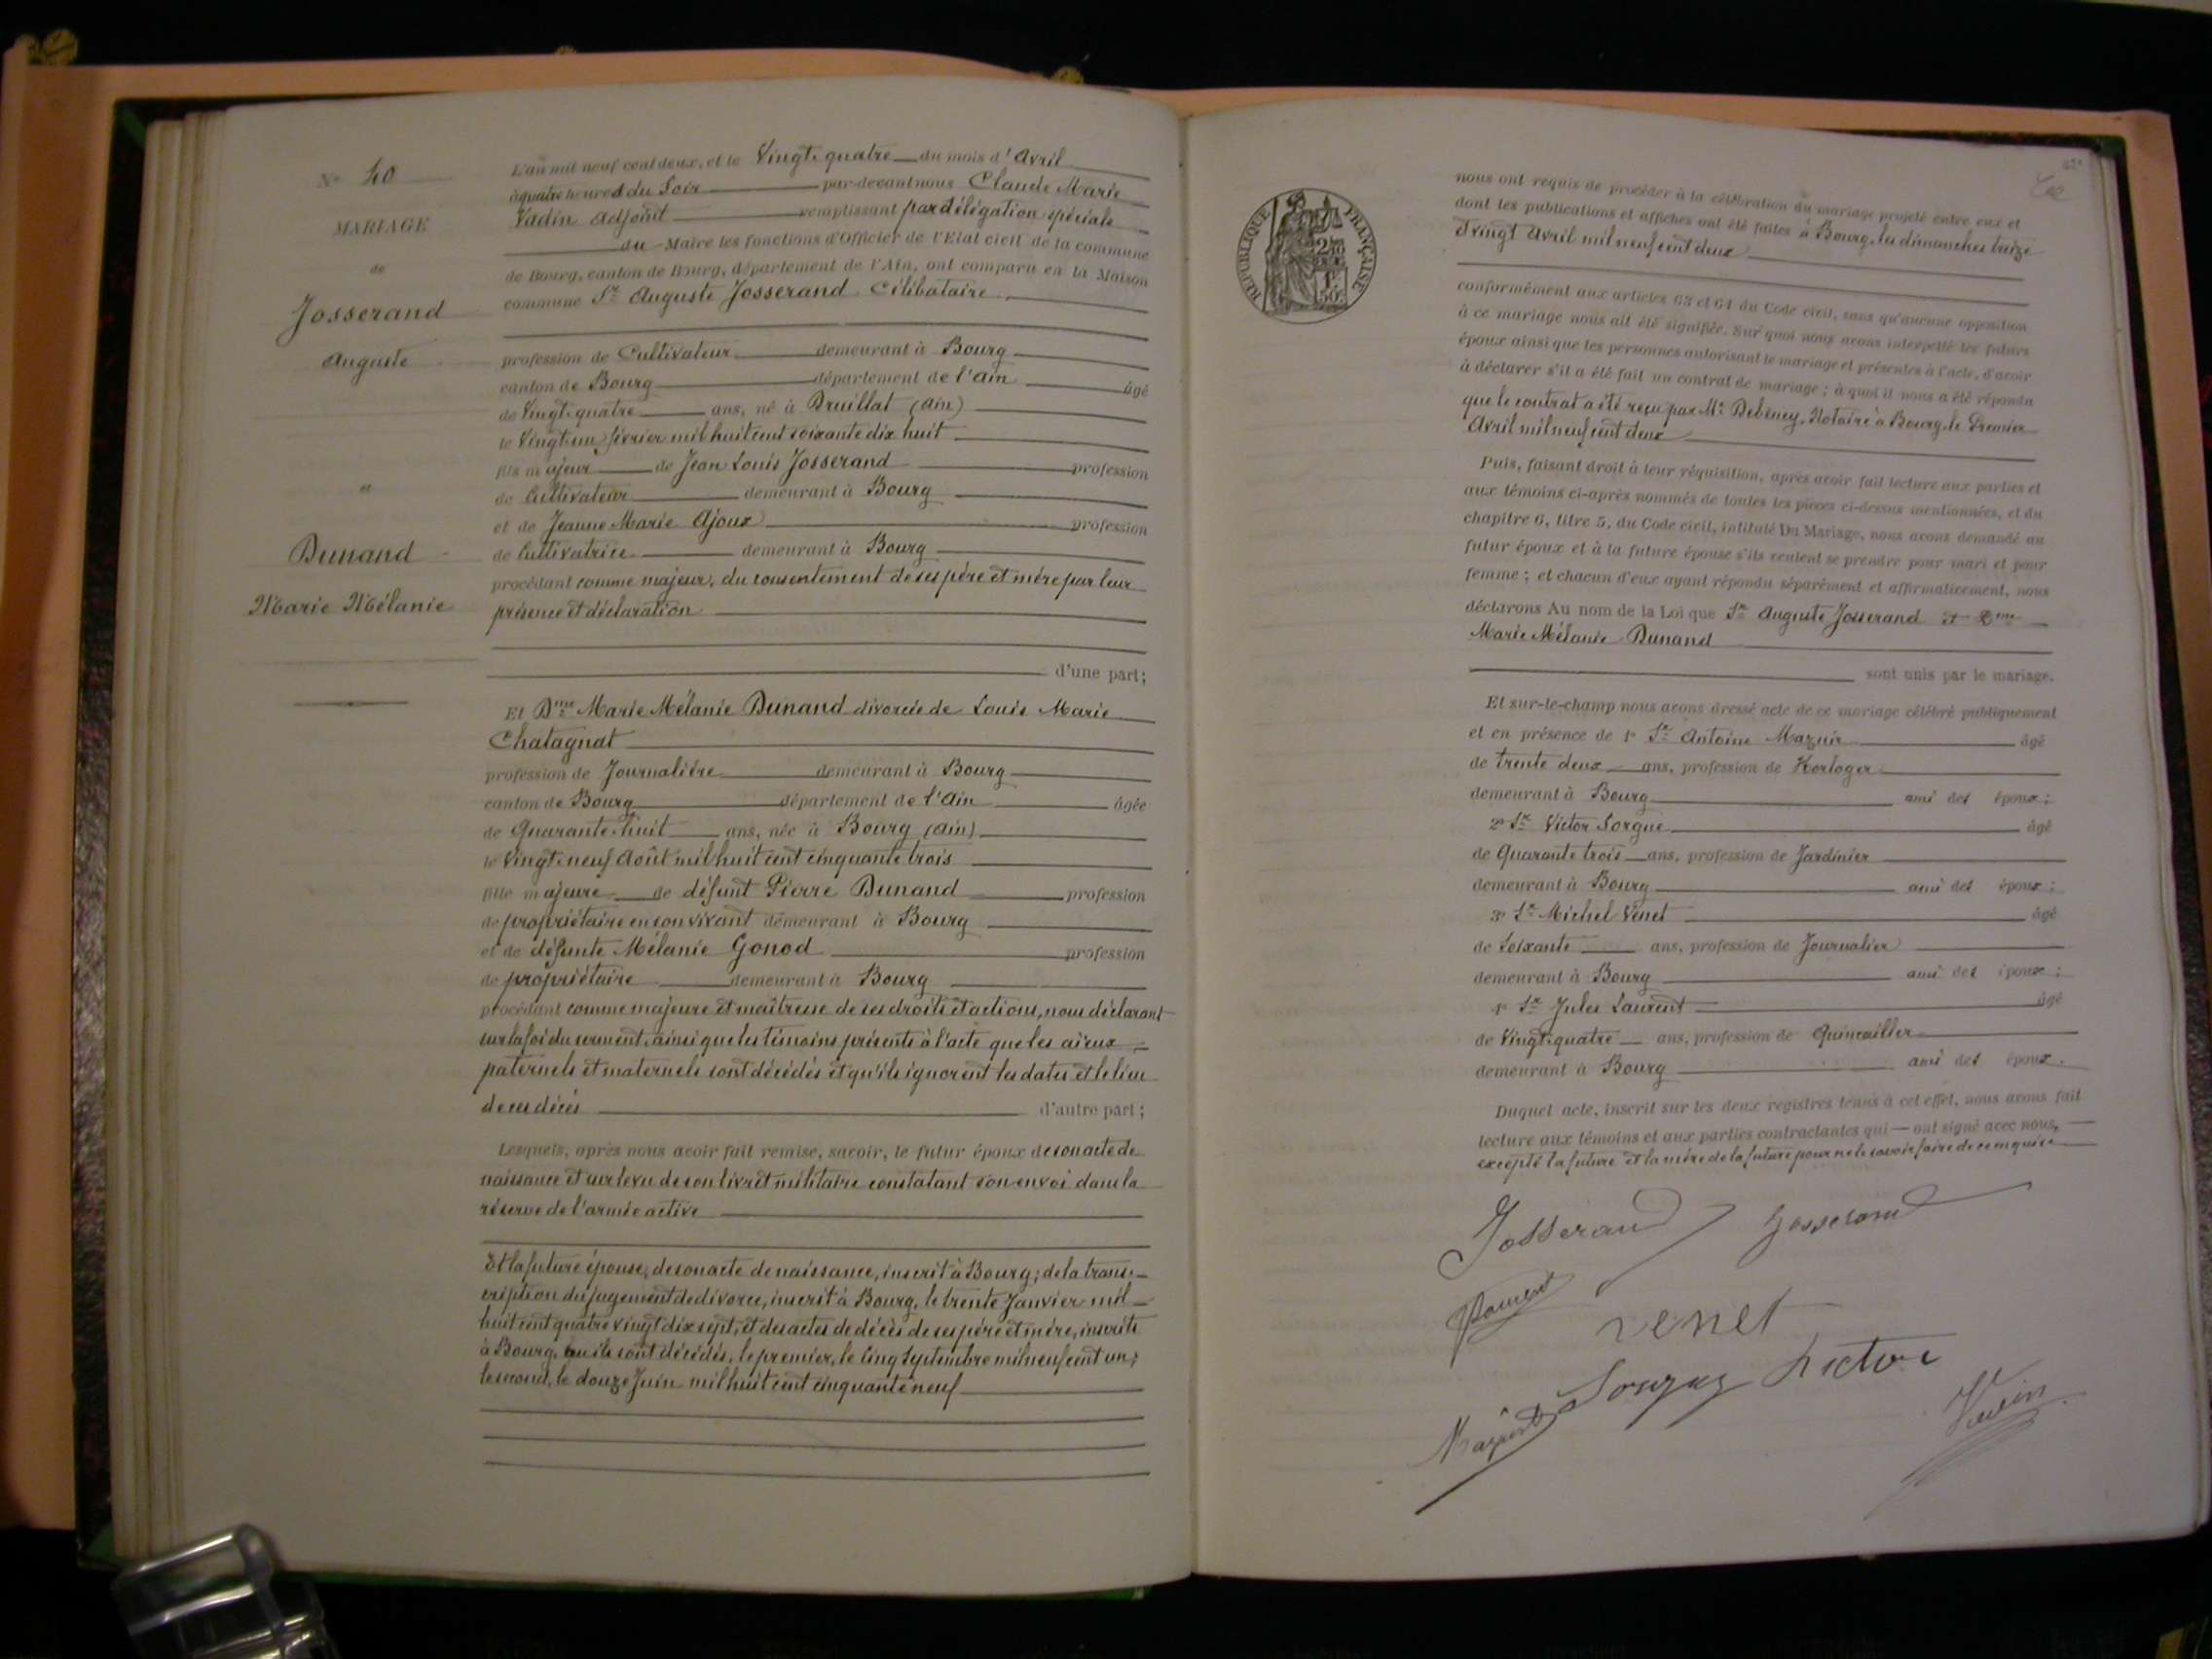 N° 40
MARIAGE
de
Josserand
Auguste
et
Dunand
Marie Mélanie
L'an mil neuf cent deux, et le Vingt-quatre du mois d'Avril
à quatre heures du Soir par-devant nous Claude Marie
Vadin Adjoint remplissant par délégation spéciale
du Maire les fonctions d'Officier de l'Etat civil de la commune
de Bourg, canton de Bourg, département de l'Ain, ont comparu en la Maison
commune Sr Auguste Josserand Célibataire
profession de Cultivateur demeurant à Bourg
canton de Bourg département de l'Ain âgé
de Vingt-quatre ans, né à Druillat (Ain)
le Vingt-un février mil huit cent soixante dix huit
fils majeur de Jean Louis Josserand profession
de Cultivateur demeurant à Bourg
et de Jeanne Marie Ajoux profession
de Cultivatrice demeurant à Bourg
procédant comme majeur, du consentement de ses père et mère par leur
présence et déclaration
d'une part;
Et Dme Marie Mélanie Dunand divorcée de Louis Marie
Chatagnat
profession de Journalière demeurant à Bourg
canton de Bourg département de l'Ain âgée
de Quarante-huit ans, née à Bourg (Ain)
le Vingt-neuf Août mil huit cent cinquante trois
fille majeure de défunt Pierre Dunand profession
de propriétaire en son vivant demeurant à Bourg
et de défunte Mélanie Gonod profession
de propriétaire demeurant à Bourg
procédant comme majeure et maîtresse de ses droits et actions, nous déclarant
sur la foi du serment, ainsi que les témoins présents à l'acte que les aïeux
paternels et maternels sont décédés et qu'ils ignorent les dates et le lieu
de ces décès d'autre part;
Lesquels, après nous avoir fait remise, savoir, le futur époux de son acte de
naissance et sur le vu de son livret militaire constatant son envoi dans la
réserve de l'armée active
Et la future épouse, de son acte de naissance, inscrit à Bourg; de la trans-
cription du jugement de divorce, inscrit à Bourg, le trente Janvier mil
huit cent quatre vingt dix sept, et des actes de décès de ses père et mère, inscrits
à Bourg, où ils sont décédés, le premier, le Cinq Septembre mil neuf cent un;
le second, le douze Juin mil huit cent cinquante neuf
RÉPUBLIQUE FRANÇAISE
nous ont requis de procéder à la célébration du mariage projeté entre eux et
dont les publications et affiches ont été faites à Bourg, les dimanches treize
et vingt Avril mil neuf cent deux
conformément aux articles 63 et 64 du Code civil, sans qu'aucune opposition
à ce mariage nous ait été signifiée. Sur quoi nous avons interpellé les futurs
époux ainsi que les personnes autorisant le mariage et présentes à l'acte, d'avoir
à déclarer s'il a été fait un contrat de mariage; à quoi il nous a été répondu
que le contrat a été reçu par Me Debeney, Notaire à Bourg, le Premier
Avril mil neuf cent deux
Puis, faisant droit à leur réquisition, après avoir fait lecture aux parties et
aux témoins ci-après nommés de toutes les pièces ci-dessus mentionnées, et du
chapitre 6, titre 5, du Code civil, intitulé Du Mariage, nous avons demandé au
futur époux et à la future épouse s'ils veulent se prendre pour mari et pour
femme; et chacun d'eux ayant répondu séparément et affirmativement, nous
déclarons Au nom de la Loi que Sr Auguste Josserand et Dme
Marie Mélanie Dunand
sont unis par le mariage.
Et sur-le-champ nous avons dressé acte de ce mariage célébré publiquement
et en présence de 1° Sr Antoine Maznir âgé
de trente deux ans, profession de Horloger
demeurant à Bourg ami des époux;
2° Sr Victor Sorgue âgé
de Quarante trois ans, profession de Jardinier
demeurant à Bourg ami des époux;
3° Sr Michel Venet âgé
de Soixante ans, profession de Journalier
demeurant à Bourg ami des époux;
4° Sr Jules Laurent âgé
de Vingt-quatre ans, profession de Quincailler
demeurant à Bourg ami des époux.
Duquel acte, inscrit sur les deux registres tenus à cet effet, nous avons fait
lecture aux témoins et aux parties contractantes qui ont signé avec nous,
excepté la future et la mère de la future pour ne le savoir faire de ce enquises
Josserand Josserand
Laurent
venet
Sorgue victor
Vadin